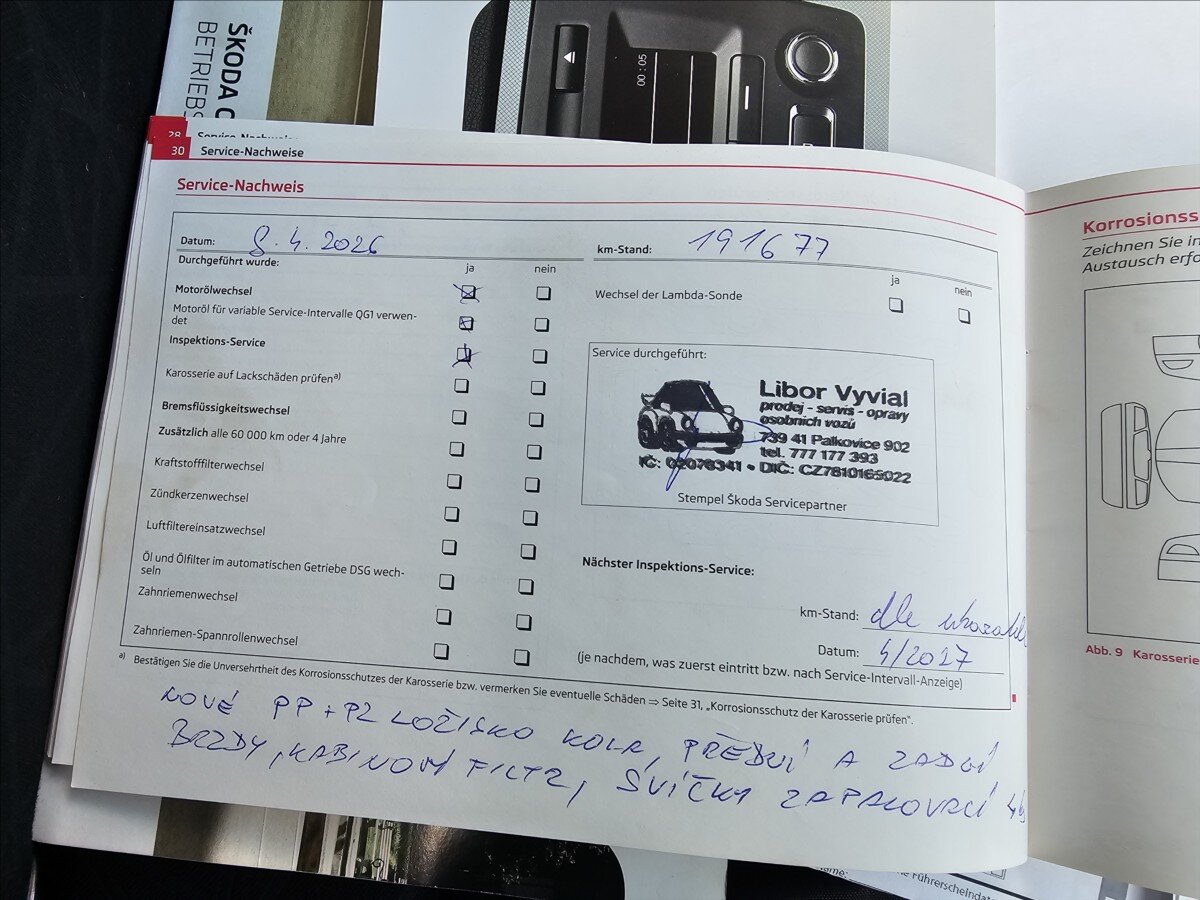 ŠKODA C
BETRIEBS
00:05
28 Service-Nachweise
30 Service-Nachweise
Service-Nachweis
Datum: 8.4.2026
km-Stand: 191677
Durchgeführt wurde:
ja nein
Motorölwechsel
Motoröl für variable Service-Intervalle QG1 verwen-
det
Inspektions-Service
Karosserie auf Lackschäden prüfen a)
Bremsflüssigkeitswechsel
Zusätzlich alle 60 000 km oder 4 Jahre
Kraftstofffilterwechsel
Zündkerzenwechsel
Luftfiltereinsatzwechsel
Öl und Ölfilter im automatischen Getriebe DSG wech-
seln
Zahnriemenwechsel
Zahnriemen-Spannrollenwechsel
ja nein
Wechsel der Lambda-Sonde
Service durchgeführt:
Libor Vyvial
prodej - servis - opravy
osobních vozů
739 41 Palkovice 902
tel. 777 177 393
IČ: 02078341 • DIČ: CZ7810165022
Stempel Škoda Servicepartner
Nächster Inspektions-Service:
km-Stand: dle
Datum: 4/2027
(je nachdem, was zuerst eintritt bzw. nach Service-Intervall-Anzeige)
a) Bestätigen Sie die Unversehrtheit des Korrosionsschutzes der Karosserie bzw. vermerken Sie eventuelle Schäden ⇒ Seite 31, „Korrosionsschutz der Karosserie prüfen“.
NOVÉ PP + PZ LOŽISKO KOLA, PŘEDNÍ A ZADNÍ
BRZDY, KABINOVÝ FILTR, SVÍČKY ZAPALOVACÍ 4ks
Korrosionss
Zeichnen Sie in
Austausch erfo
Abb. 9 Karosserie
Führerscheindate